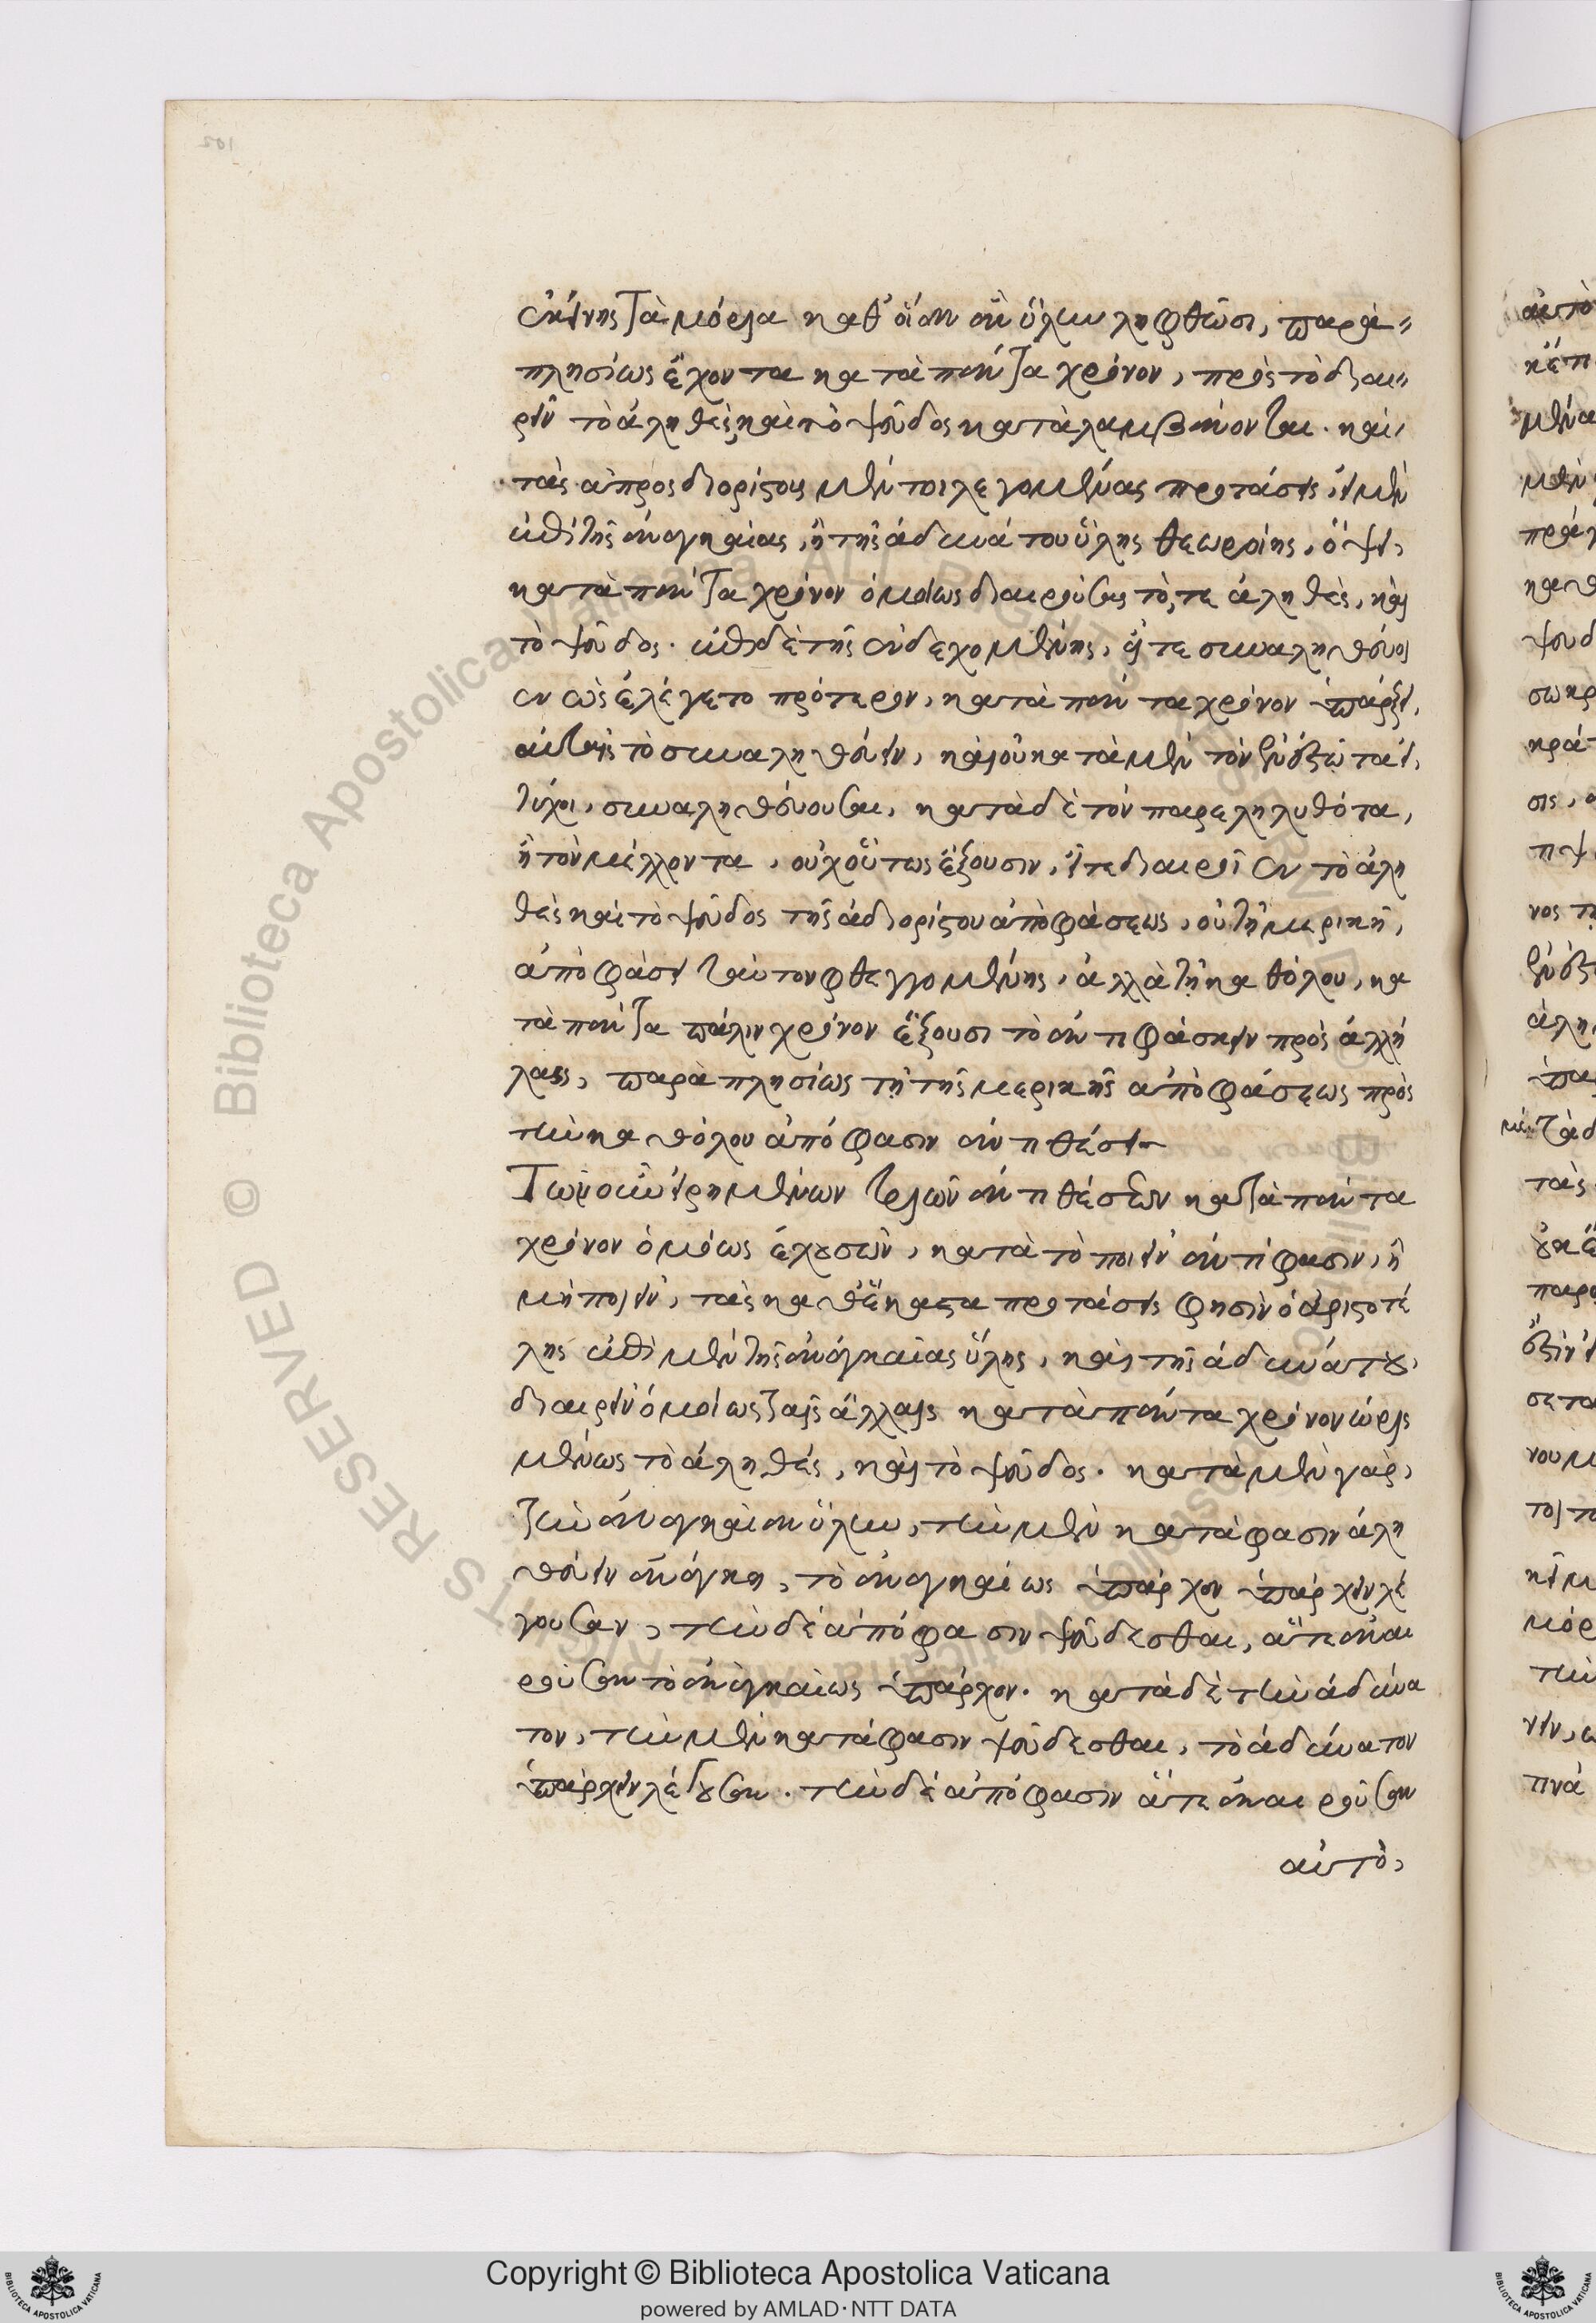 ἐκείνης τὰ μόρια καθ' οἵαν ἂν ὕλην ληφθῶσι, παρα=
πλησίως ἔχοντα κατὰ πάντα χρόνον, πρὸς τὸ διαι=
ρεῖν τὸ ἀληθὲς καὶ τὸ ψεῦδος καταλαμβάνονται. καὶ
τὰς ἀπροσδιορίστους μέντοι λεγομένας προτάσεις, εἰ μὲν
ἐπὶ τῆς ἀναγκαίας, ἢ τῆς ἀδυνάτου ὕλης θεωροίης, ὄψει
κατὰ πάντα χρόνον ὁμοίως διαιρούσας τό, τε ἀληθὲς, καὶ
τὸ ψεῦδος. ἐπὶ δὲ τῆς ἐνδεχομένης, εἴ τε συναληθεύοι
εν ὡς ἐλέγετο πρότερον, κατὰ πάντα χρόνον ὑπάρξει
αὐταῖς τὸ συναληθεύειν, καὶ οὐ κατὰ μὲν τὸν ἐνεστῶτα εἰ
τύχοι, συναληθεύουσαι, κατὰ δὲ τὸν παρεληλυθότα,
ἢ τὸν μέλλοντα, οὐχ οὕτως ἕξουσιν, εἴτε διαιροῖεν τὸ ἀλη
θὲς καὶ τὸ ψεῦδος τῆς ἀδιορίστου ἀποφάσεως, οὐ τῇ μερικῇ
ἀποφάσει ταὐτὸν φθεγγομένης, ἀλλὰ τῇ καθόλου, κα
τὰ πάντα πάλιν χρόνον ἕξουσι τὸ ἀντιφάσκειν πρὸς ἀλλή
λας, παραπλησίως τῇ τῆς μερικῆς ἀποφάσεως πρὸς
τὴν καθόλου ἀπόφασιν ἀντιθέσει
Τῶν οὖν εἰρημένων τριῶν ἀντιθέσεων κατὰ πάντα
χρόνον ὁμοίως ἐχουσῶν, κατὰ τὸ ποιεῖν ἀντίφασιν, ἢ
μὴ ποιεῖν, τὰς καθ' ἕκαστα προτάσεις φησὶν ὁ ἀριστοτέ
λης ἐπὶ μὲν τῆς ἀναγκαίας ὕλης, καὶ τῆς ἀδυνάτου,
διαιρεῖν ὁμοίως ταῖς ἄλλαις κατὰ πάντα χρόνον ὡρισ
μένως τὸ ἀληθές, καὶ τὸ ψεῦδος. κατὰ μὲν γὰρ,
τὴν ἀναγκαίαν ὕλην, τὴν μὲν κατάφασιν ἀλη
θεύειν ἀνάγκη, τὸ ἀναγκαίως ὑπάρχον ὑπάρχειν λέ
γουσαν, τὴν δὲ ἀπόφασιν ψεύδεσθαι, ἅτε ἀναι
ροῦσαν τὸ ἀναγκαίως ὑπάρχον. κατὰ δὲ τὴν ἀδύνα
τον, τὴν μὲν κατάφασιν ψεύδεσθαι, τὸ ἀδύνατον
ὑπάρχειν λέγουσαν. τὴν δὲ ἀπόφασιν ἅτε ἀναιροῦσαν
αὐτὸ,
Copyright © Biblioteca Apostolica Vaticana
powered by AMLAD·NTT DATA